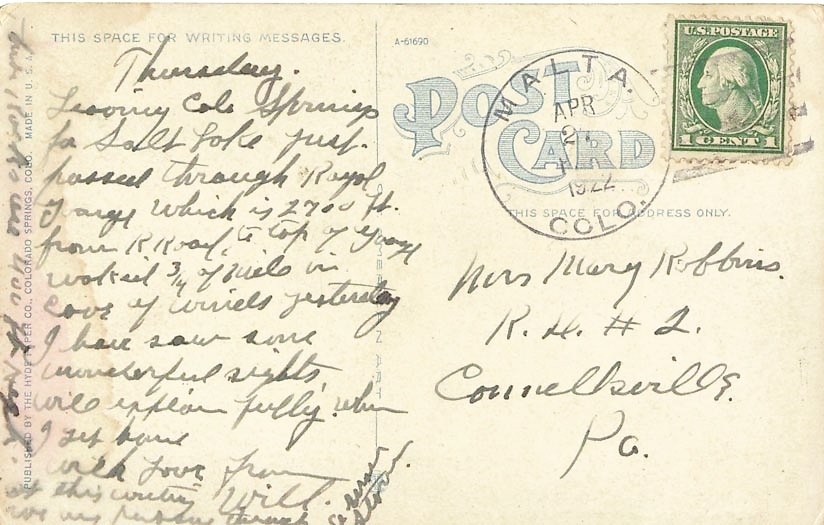 THIS SPACE FOR WRITING MESSAGES.
Thursday.
Leaving Colo Springs
for Salt Lake just
passed through Royal
Gorge which is 2700 ft.
from R Road, to top of Gorge
walked 3/4 of mile in
Cave of Winds yesterday
I have saw some
wonderful sights
will explain fully when
I get home
with love from
at this writing Will.
through
PUBLISHED BY THE HYDE PAPER CO., COLORADO SPRINGS, COLO. MADE IN U.S.A.
A-61690
POST CARD
MALTA.
APR
1922
COLO.
U.S.POSTAGE
1 CENT 1
THIS SPACE FOR ADDRESS ONLY.
Mrs Mary Robbins.
R. D. # 2.
Connellsville.
Pa.